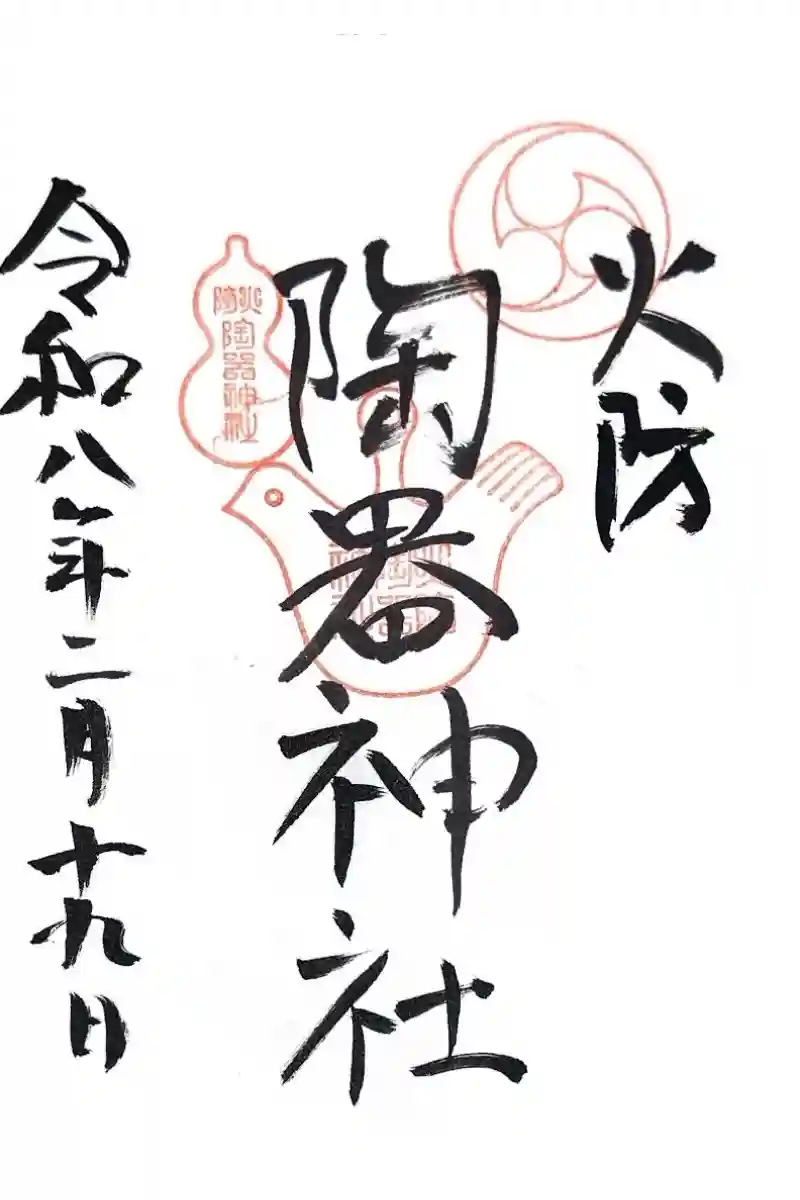 火防
陶器神社
火防
陶器神社
火防
陶器
神社
令和八年二月十九日